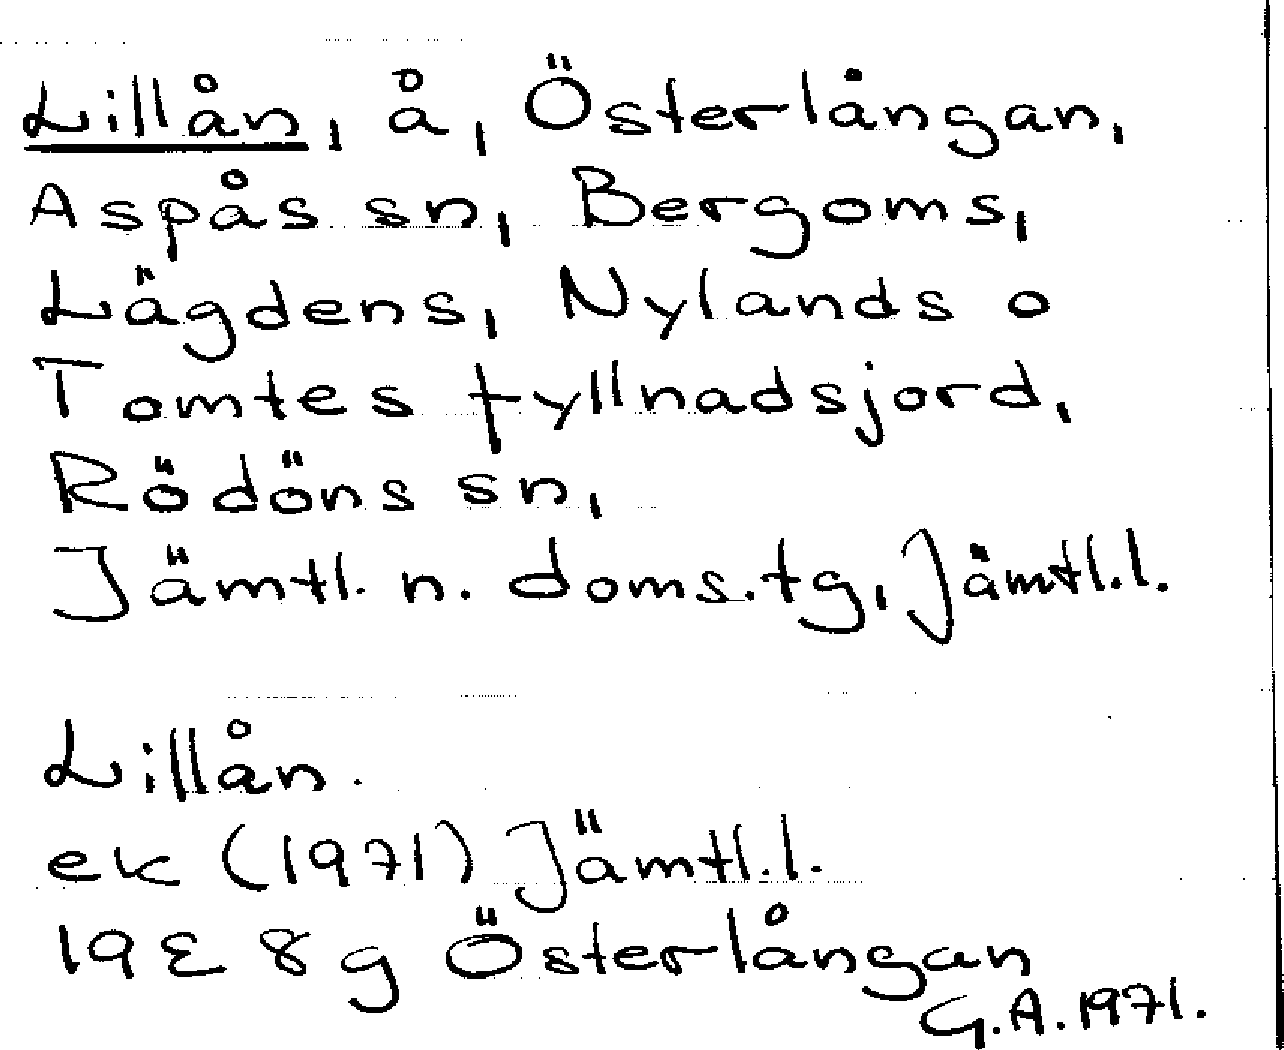 Lillån, å, Österlången,
Aspås sn, Bergoms,
Lägdens, Nylands o
Tomtes fyllnadsjord,
Rödöns sn,
Jämtl. n. doms.tg, Jämtl.l.
Lillån.
ek (1971) Jämtl.l.
19E 8g Österlångan
G.A. 1971.